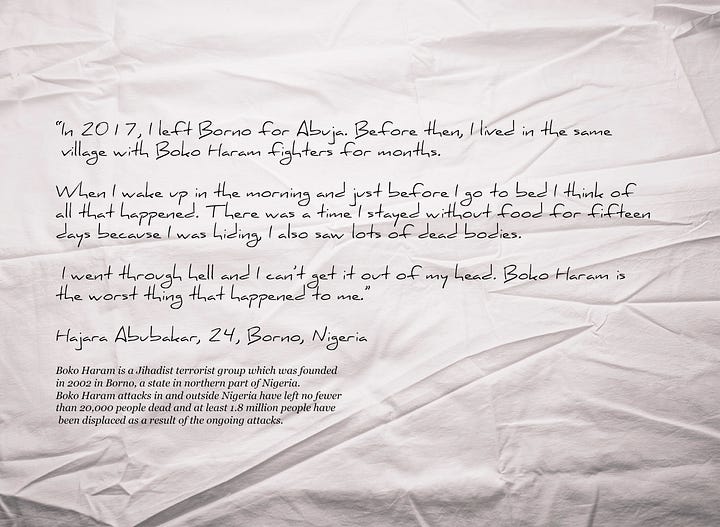 “In 2017, I left Borno for Abuja. Before then, I lived in the same
village with Boko Haram fighters for months.
When I wake up in the morning and just before I go to bed I think of
all that happened. There was a time I stayed without food for fifteen
days because I was hiding, I also saw lots of dead bodies.
I went through hell and I can't get it out of my head. Boko Haram is
the worst thing that happened to me.”
Hajara Abubakar, 24, Borno, Nigeria
Boko Haram is a Jihadist terrorist group which was founded
in 2002 in Borno, a state in northern part of Nigeria.
Boko Haram attacks in and outside Nigeria have left no fewer
than 20,000 people dead and at least 1.8 million people have
been displaced as a result of the ongoing attacks.